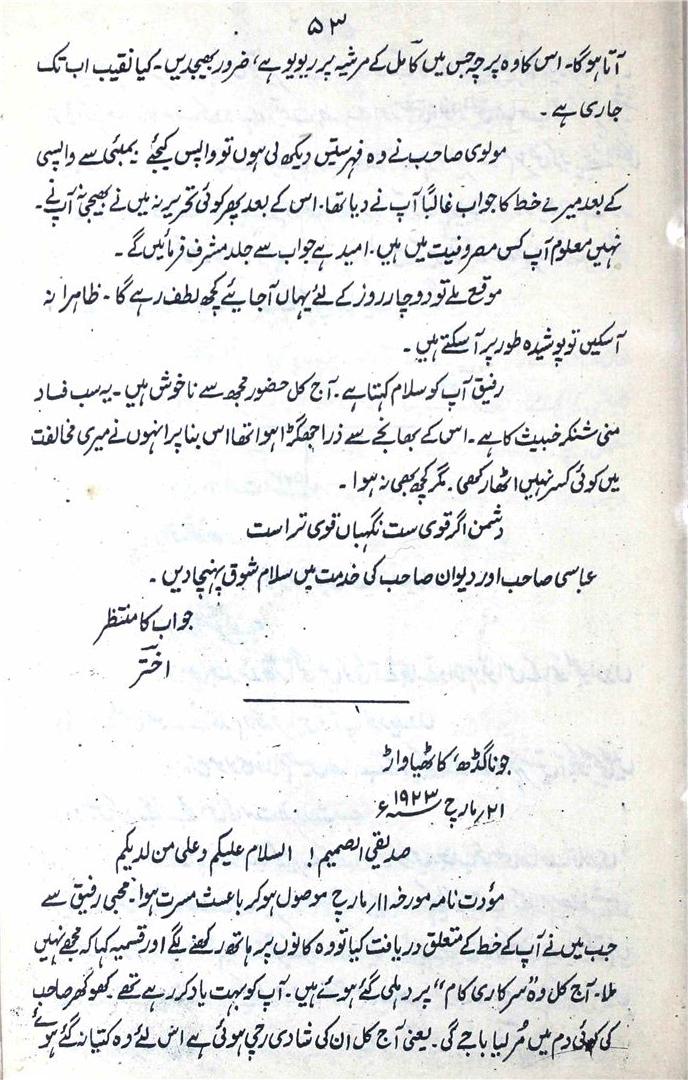 ۵۳
آتا ہوگا۔ اس کا وہ پرچہ جس میں کامل کے مرثیہ پر ریویو ہے، ضرور بھیجدیں۔ کیا نقیب اب تک
جاری ہے۔
مولوی صاحب نے وہ فہرستیں دیکھ لی ہوں تو واپس کیجئے بمبئی سے واپسی
کے بعد میرے خط کا جواب غالباً آپ نے دیا تھا۔ اس کے بعد پھر کوئی تحریر نہ میں نے بھیجی نہ آپ نے۔
نہیں معلوم آپ کس مصروفیت میں ہیں۔ امید ہے جواب سے جلد مشرف فرمائیں گے۔
موقع ملے تو دو چار روز کے لئے یہاں آجایئے کچھ لطف رہے گا۔ ظاہرا نہ
آسکیں تو پوشیدہ طور پر آسکتے ہیں۔
رفیق آپ کو سلام کہتا ہے۔ آج کل حضور مجھ سے ناخوش ہیں۔ یہ سب فساد
منی شنکر خبیث کا ہے۔ اس کے بھانجے سے ذرا جھگڑا ہوا تھا اس بنا پر انہوں نے میری مخالفت
میں کوئی کسر نہیں اٹھا رکھی۔ مگر کچھ بھی نہ ہوا۔
دشمن اگر قوی ست نگہباں قوی تر است
عباسی صاحب اور دیوان صاحب کی خدمت میں سلام شوق پہنچا دیں۔
جواب کا منتظر
اختر
جوناگڈھ، کاٹھیاواڑ
۲۱؍ مارچ ۱۹۲۳ء
صدیقی الصمیم! السلام علیکم وعلی من لدیکم
مؤدت نامہ مورخہ ۱۱؍ مارچ موصول ہوکر باعث مسرت ہوا۔ محبی رفیق سے
جب میں نے آپ کے خط کے متعلق دریافت کیا تو وہ کانوں پر ہاتھ رکھنے لگے اور قسمیہ کہا کہ مجھے نہیں
ملا۔ آج کل وہ "سرکاری کام" پر دہلی گئے ہوئے ہیں۔ آپ کو بہت یاد کر رہے تھے۔ کھوکھر صاحب
کی کوئی دم میں مُرلیا باجے گی۔ یعنی آج کل ان کی شادی رچی ہوئی ہے اس لئے وہ کتیانہ گئے ہوئے